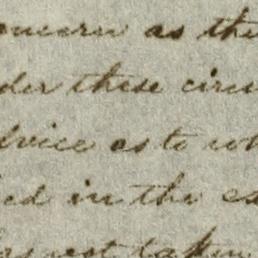 oncern as the
der these circu
dvice as to wh
ed in the ca
est taken